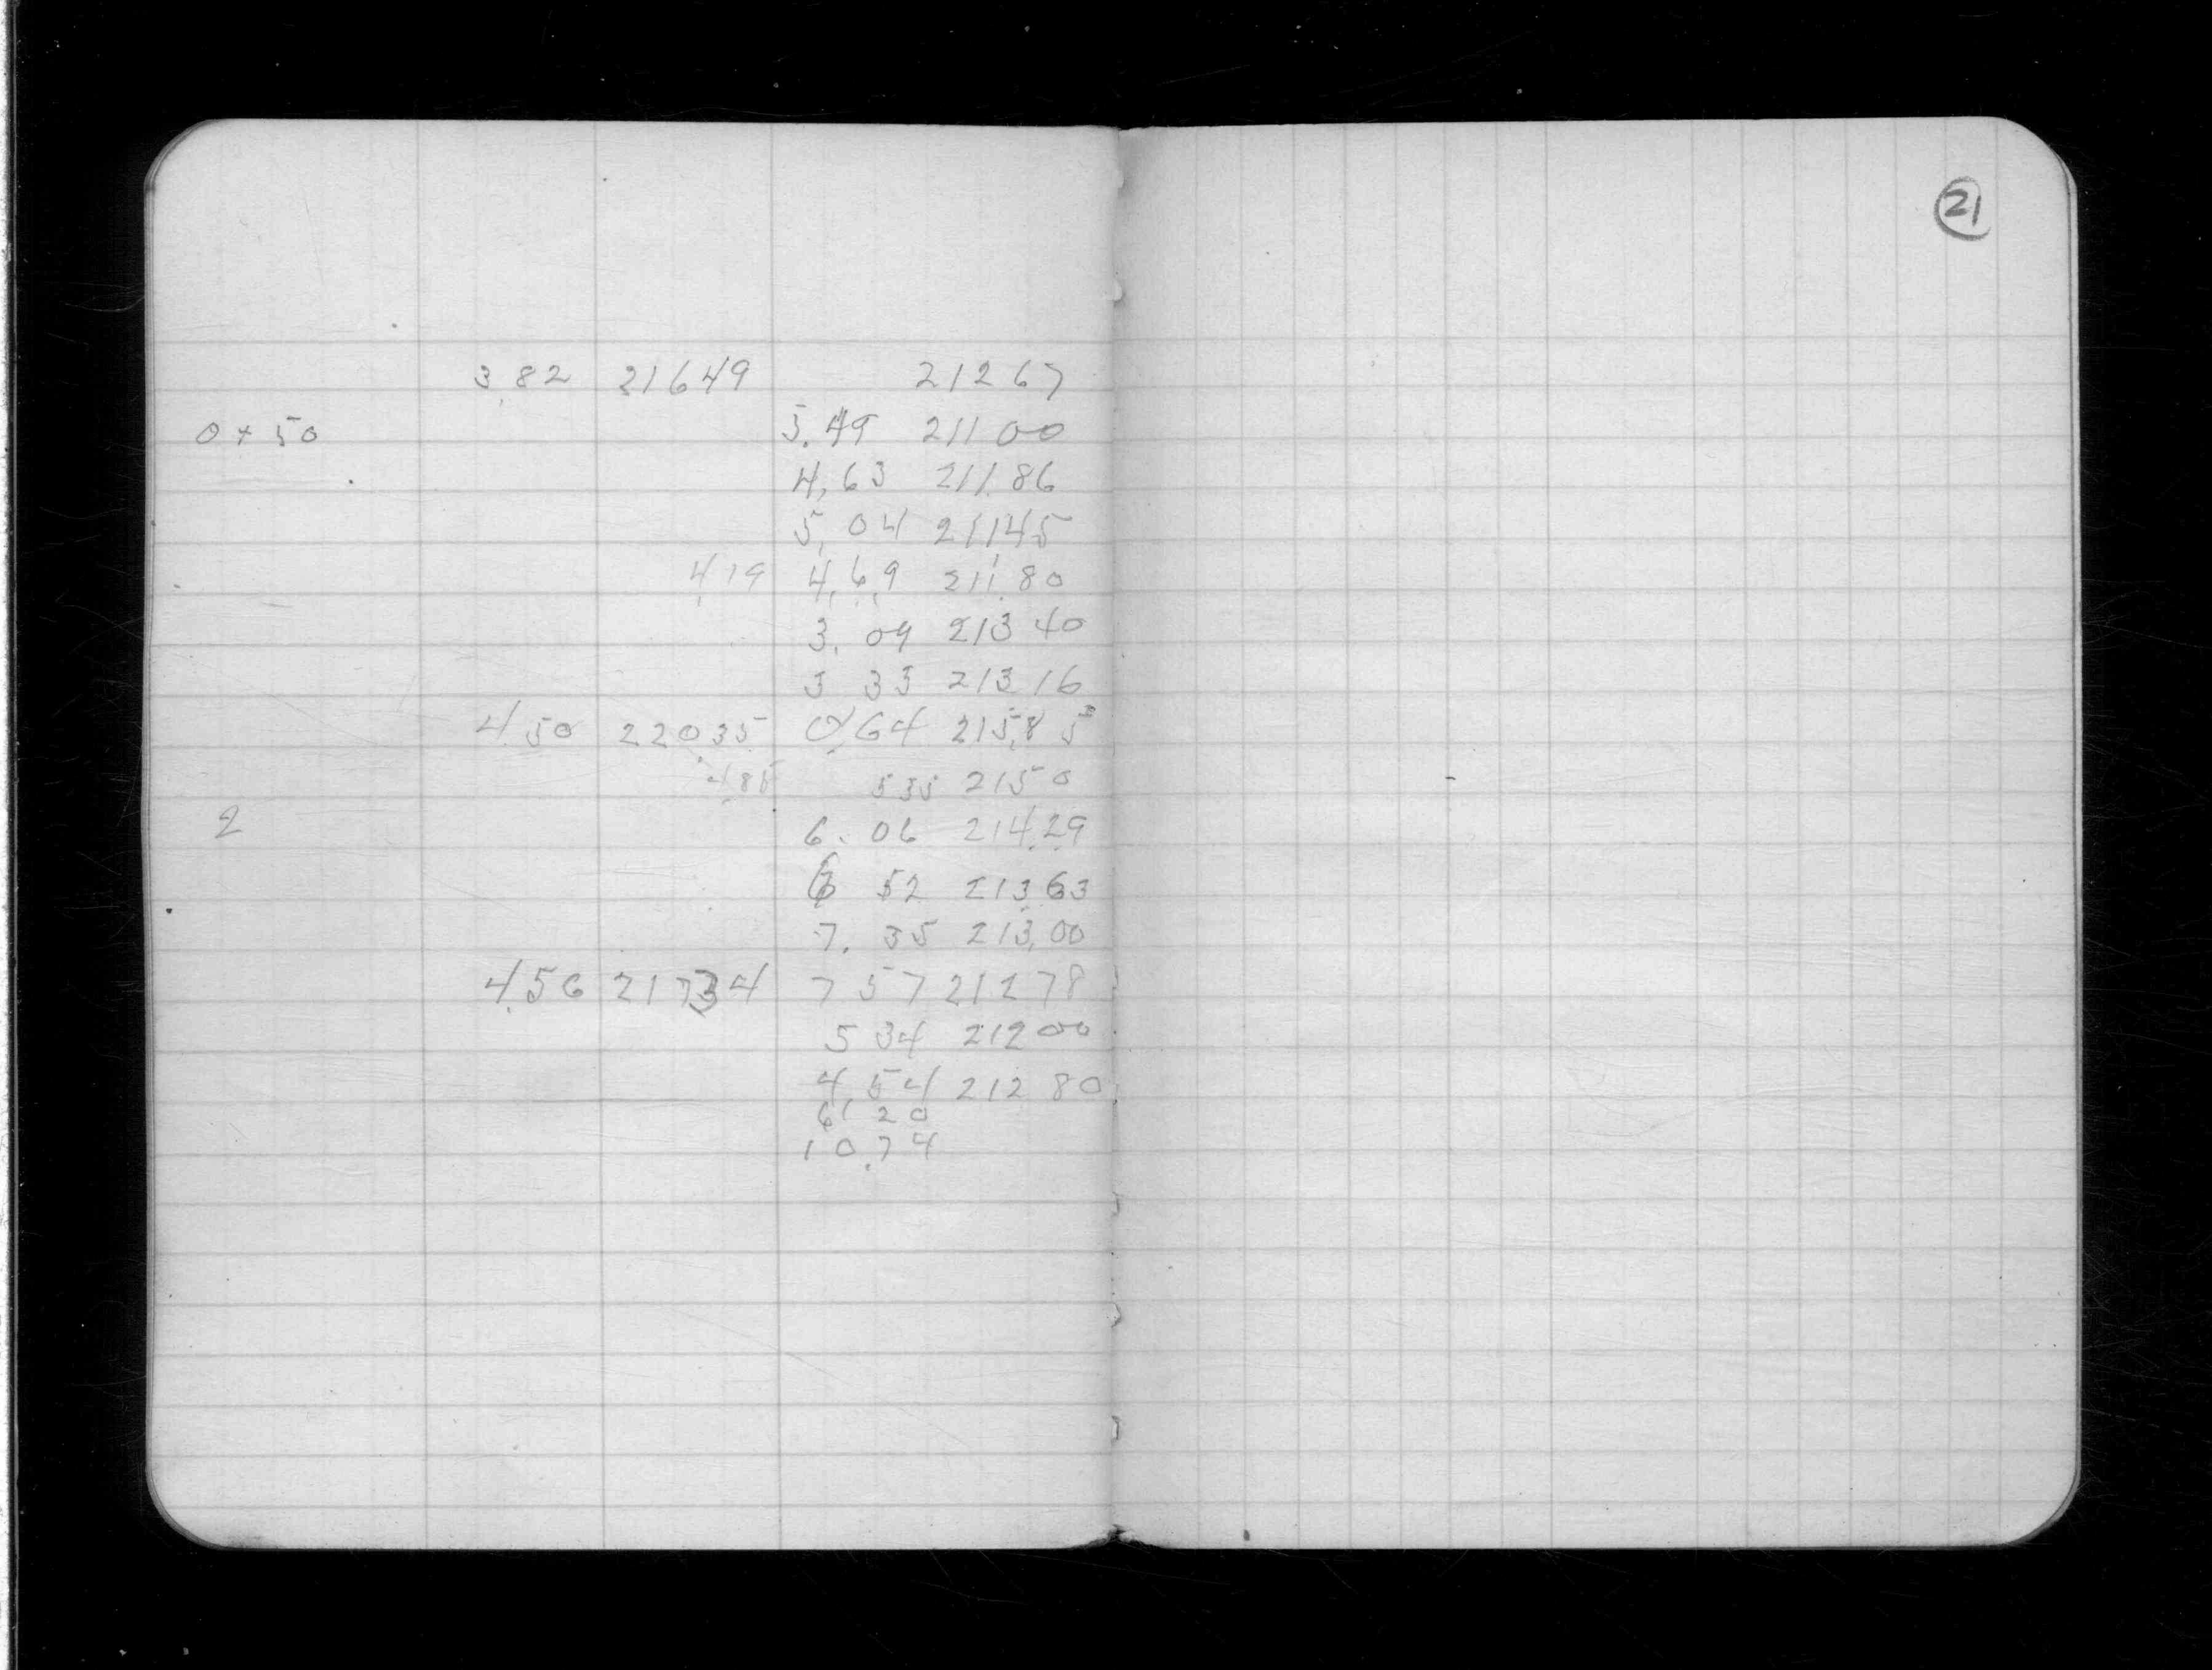 21
3.82 21649 21267
0+50 5.49 21100
4.63 211.86
5.04 21145
4.19 4.69 211.80
3.09 213 40
3 33 213 16
4.50 22035 0.64 215.85
4.85 535 2150
2 6.06 214.29
52 213 63
7.35 213.00
4.56 21734 7 57 212 78
5 34 212 00
4.54 212 80
6.20
10.74